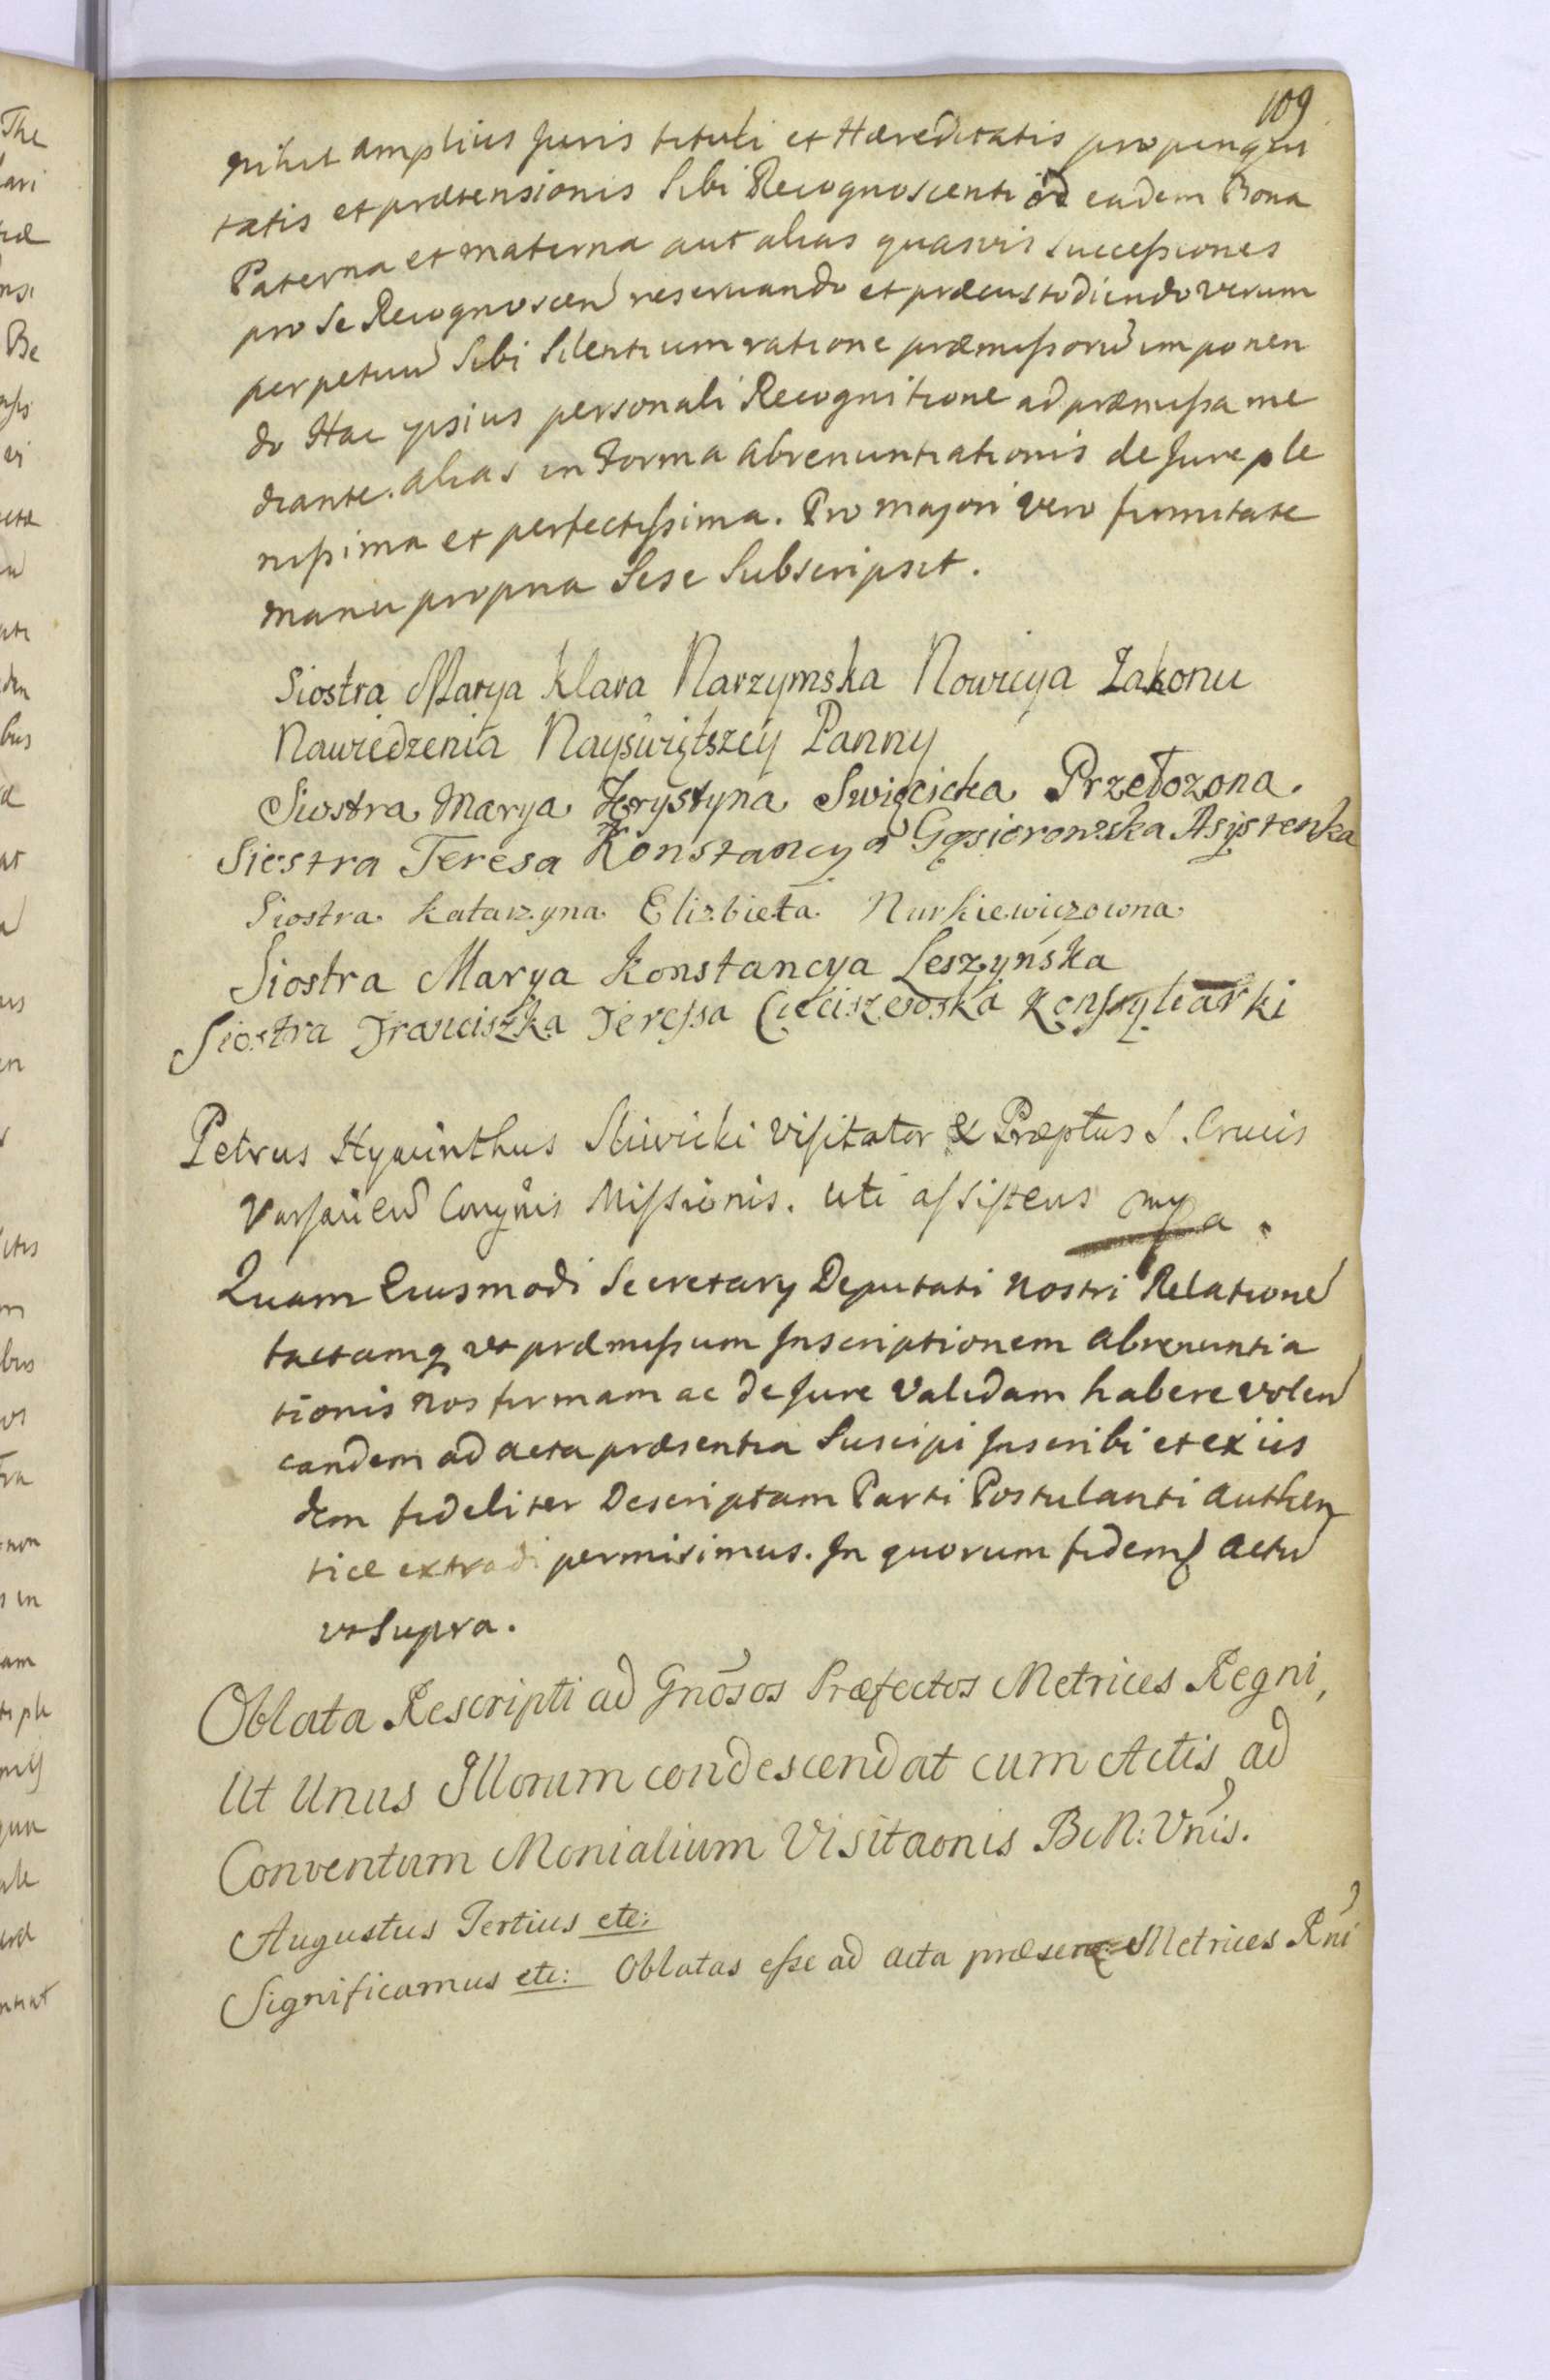 109
nihil amplius Juris tituli et Hæreditatis propinqui
tatis et prætensionis Sibi Recognoscenti ad eadem Bona
Paterna et materna aut alias quasvis Successiones
pro Se Recognoscen reservando et præcustodiendo verum
perpetuu Sibi Silentium ratione præmissoru imponen
do Hac ipsius personali Recognitione ad præmissa me
diante. alias in Forma abrenuntiationis de Jure ple
nissima et perfectissima. Pro majori vero firmitate
manu propria Sese Subscripsit.
Siostra Marya Klara Narzymska Nowicya Zakonu
Nawiedzenia Nayświętszey Panny
Siostra Marya Krystyna Swięcicka Przełozona.
Siostra Teresa Konstancya Gąsiorowska Asystenka
Siostra Katarzyna Elizbieta Nurkiewiczowna
Siostra Marya Konstancya Leszyńska
Siostra Franciszka Teressa Cieciszewska Konsyliarki
Petrus Hyacinthus Sliwicki Visitator & Præptus S. Crucis
Varsavien Congnis Missionis. uti assistens mpa.
Quam Eiusmodi Secretarij Deputati nostri Relatione
tactamq ut præmissum Inscriptionem abrenuntia
tionis nos firmam ac de Jure validam habere volen
eandem ad acta præsentia Suscipi Inscribi et ex iis
dem fideliter Descriptam Parti Postulanti authen
tice extradi permisimus. In quorum fidem Actu
ut Supra.
Oblata Rescripti ad Gnosos Præfectos Metrices Regni,
Ut Unus Illorum condescendat cum Actis ad
Conventum Monialium Visitaonis B: M: Vnis.
Augustus Tertius etc:
Significamus etc: Oblatas esse ad acta præsen Metrices Rni